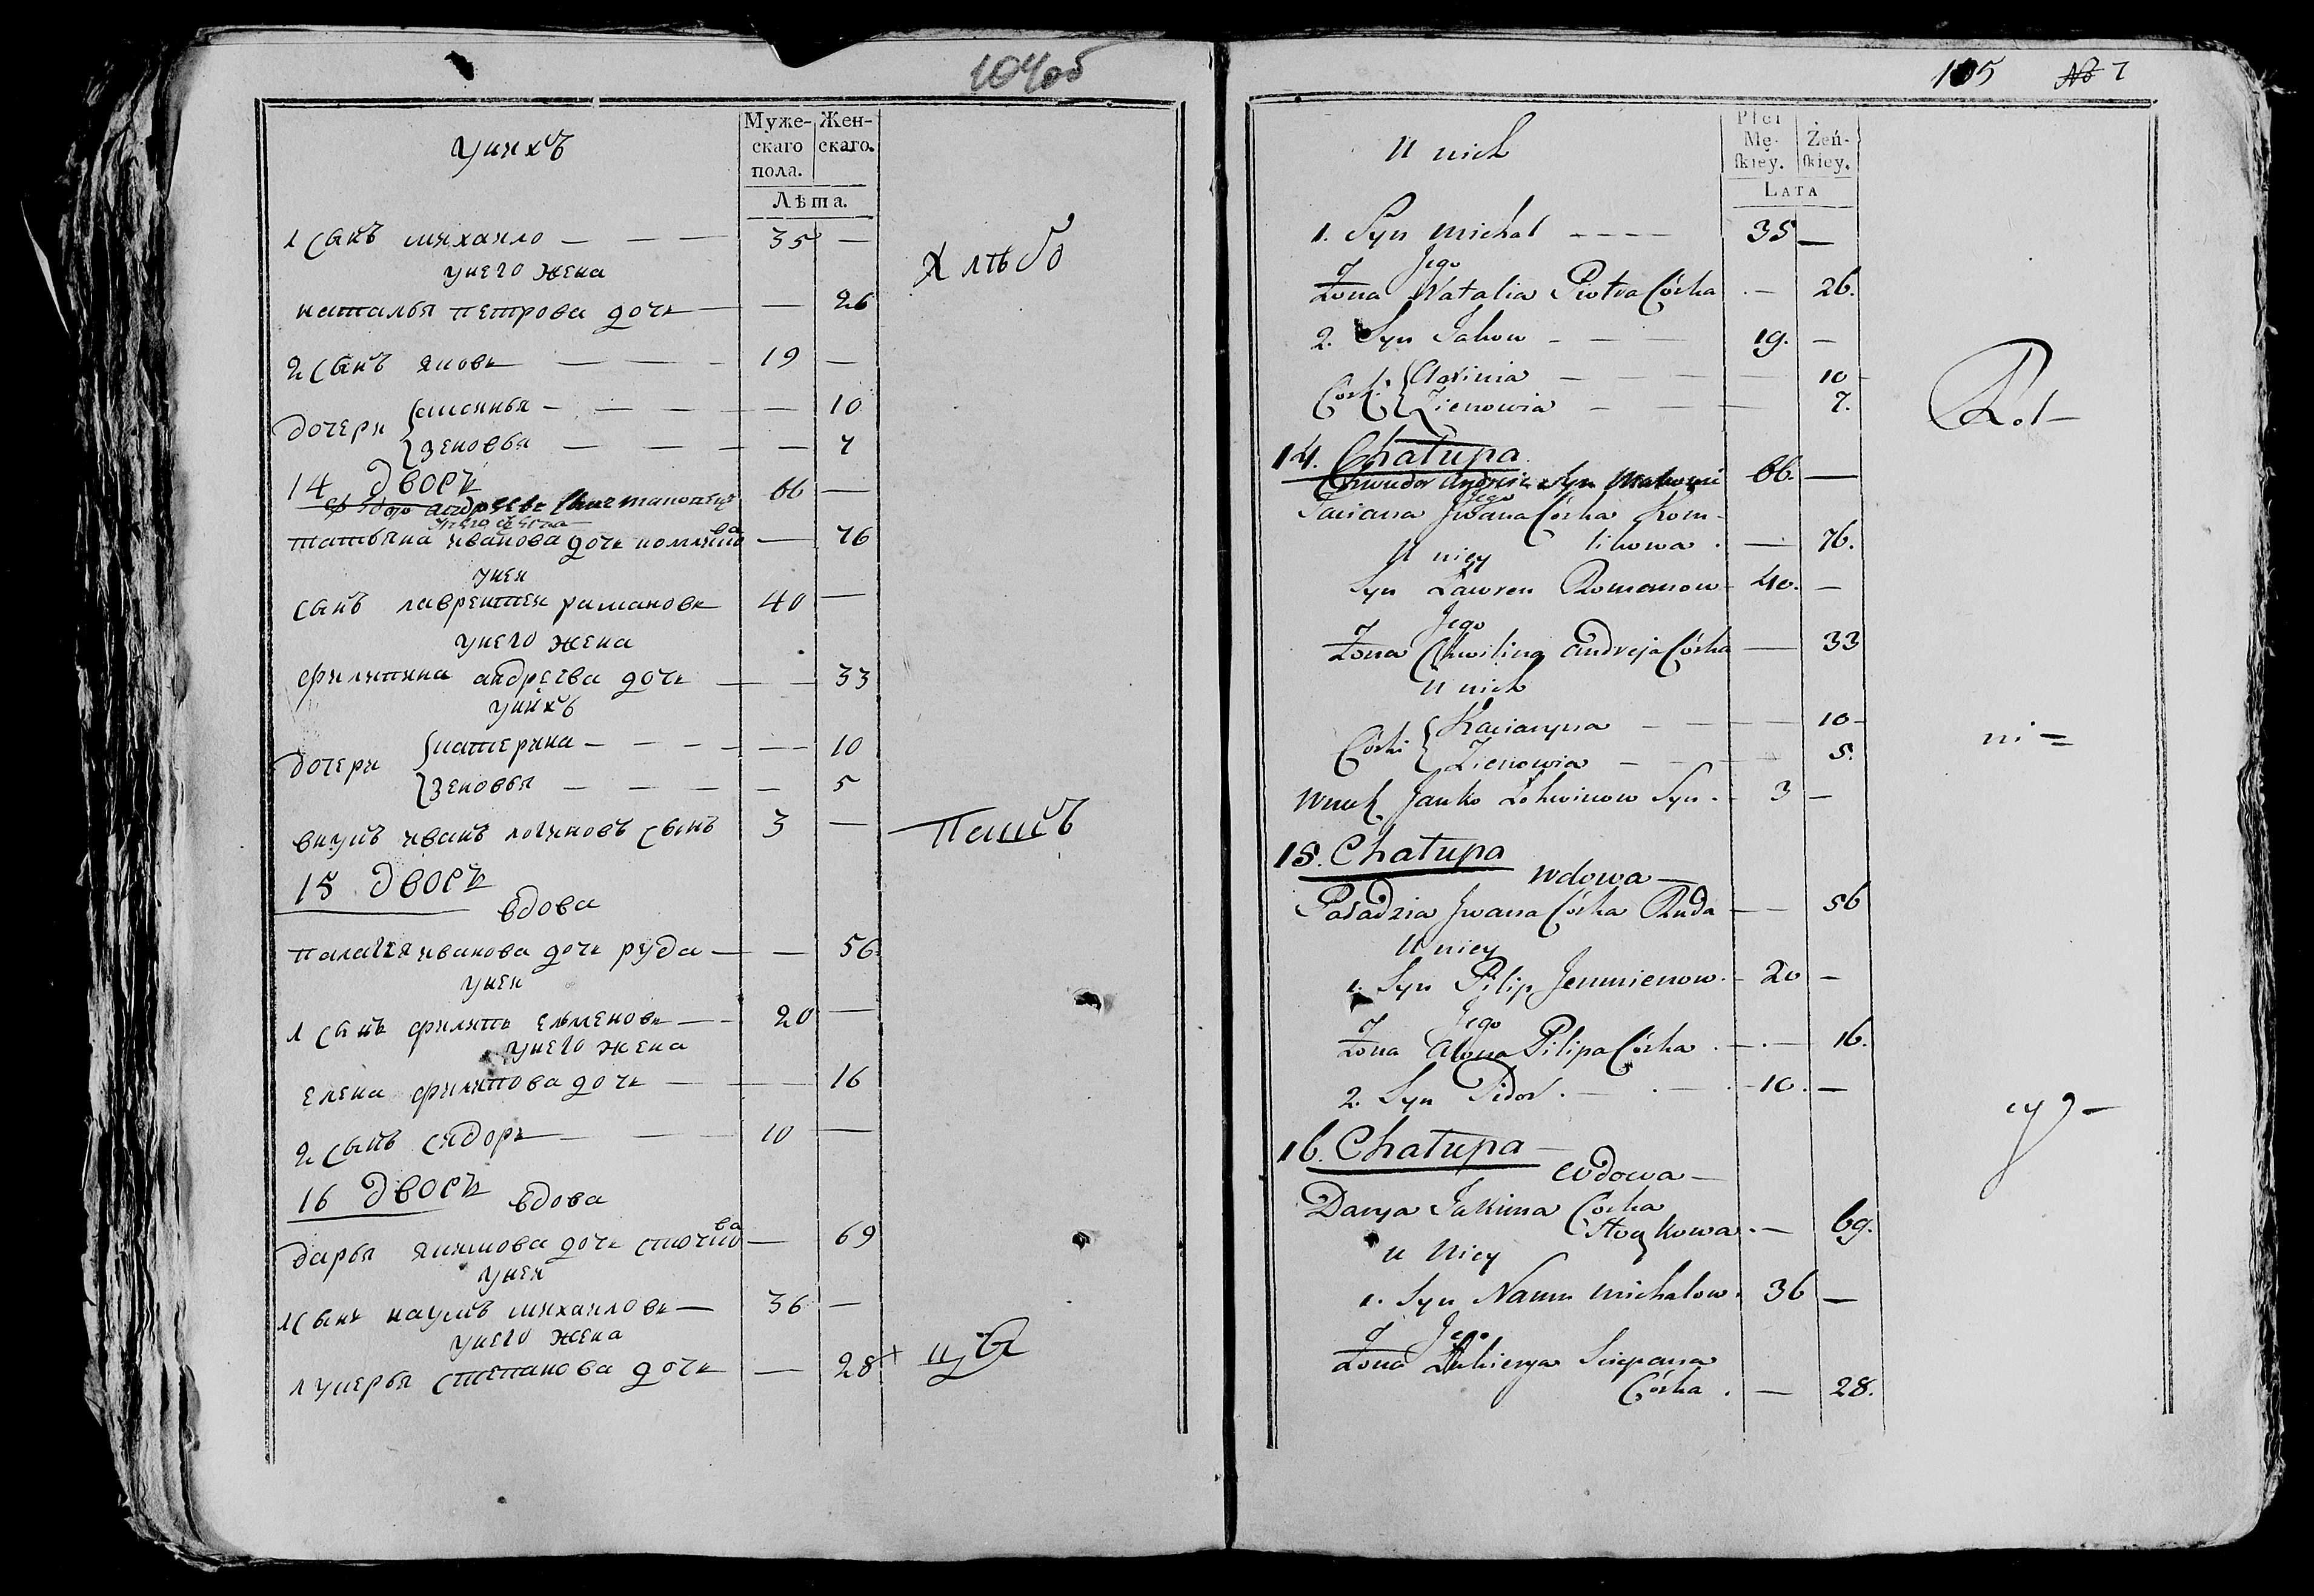 104об
Унихъ
Муже-скаго пола.
Жен-скаго.
Лѣта.
1 сынъ михаило — — — 35 —
унего жена
наталья петрова дочь — — 26
2 сынъ яковъ — — — 19 —
дочери
— — — — 10
зеновья — — — — 7
14 дворъ
66 —
татьяна иванова дочь — 76
унеи
сынъ лаврентеи романовъ 40 —
унего жена
филипина андреева дочь — — 33
унихъ
дочери
катерина — — — — — 10
зеновья — — — — — 5
внукъ иванъ логиновъ сынъ 3 —
15 дворъ
вдова
палагея иванова дочь руда — — 56
унеи
1 сынъ филипъ ельменовъ — — 20 —
унего жена
елена филипова дочь — — — 16
2 сынъ сидоръ — — — 10 —
16 дворъ
вдова
дарья якимова дочь — 69
унеи
1 сынъ наумъ михаиловъ — 36 —
унего жена
лукерья степанова дочь — 28
хлѣбо
пашъ
105 № 7
U nich
Płci Mę-ſkiey.
Żeń-ſkiey.
Lata
1. Syn Michał - - - - 35 —
Jego
Żona Natalia Piotra Córka - — 26.
2. Syn Jakow - — — 19. —
Córki
Axinia — — — — 10
Zienowia — — — 7.
14. Chałupa
66. —
Jego
Taciana Jwana Córka Kom-
likowa. — 76.
U niey
Syn Lawren Romanow - 40. —
Jego
Żona Chwilina Andreja Córka — 33
U nich
Córki
Kaciaryna — — — — 10 -
Zienowia — — — 5.
Wnuk Janko Lohwinow Syn. - 3 —
15. Chałupa
Wdowa —
Paładzia Jwana Córka Ruda — — 56
U niey
1. Syn Pilip Jemmienow. - 20 —
Jego
Żona Alona Pilipa Córka. —.— 16.
2. Syn Sidor. — . — . - 10. —
16. Chałupa —
Wdowa —
Darya Jakima Córka
69.
U Niey
1. Syn Naum Michałow. 36 —
Jego
Żona Łukierya Sciepana
Córka. — 28.
Rol —
ni =